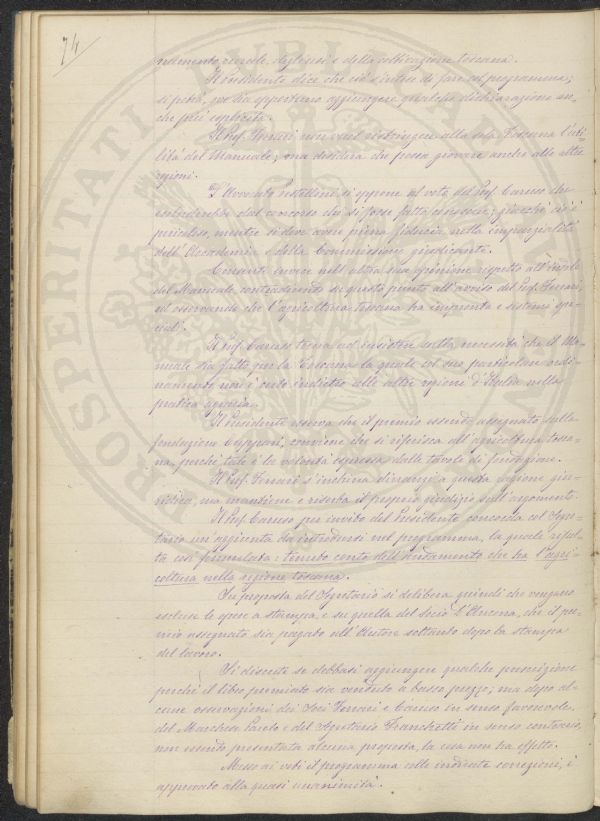 74
namento rurale, degli usi e della coltivazione toscana.
Il Presidente dice che ciò s'intese di fare col programma;
si potrà, ove sia opportuno aggiungere qualche dichiarazione an-
che più esplicita.
Il Prof. Ferrari non vuol restringere alla sola Toscana l'uti-
lità del Manuale, ma desidera che possa giovare anche alle altre
regioni.
L'Avvocato si oppone al voto del Prof. Caruso che
escluderebbe dal concorso chi si fosse fatto conoscere; giacché ciò è
pericoloso, mentre si deve avere piena fiducia nella imparzialità
dell'Accademia e della Commissione giudicante.
Consente invece nell'altra sua opinione rispetto all'indole
del Manuale, contradicendo su questo punto all'avviso del Prof. Ferrari,
ed osservando che l'agricoltura toscana ha impronta e sistemi spe-
ciali.
Il Prof. Caruso torna ad insistere sulla necessità che il Ma-
nuale sia fatto per la Toscana la quale col suo particolare ordi-
namento non è certo indietro alle altre regioni d'Italia nella
pratica agraria.
Il Presidente osserva che il premio essendo assegnato sulla
fondazione conviene che si riferisca all'agricoltura tosca-
na, perché tale è la volontà espressa dalle tavole di fondazione.
Il Prof. Ferrari s'inchina dinanzi a questa ragione giu-
ridica, ma mantiene e riserba il proprio giudizio sull'argomento.
Il Prof. Caruso per invito del Presidente concorda col Segre-
tario un'aggiunta da introdursi nel programma, la quale resta
così formulata: tenuto conto dell'andamento che ha l'agri-
coltura nella regione toscana.
Su proposta del Segretario si delibera quindi che vengano
escluse le opere a stampa, e su quella del Socio che il pre-
mio assegnato sia pagato all'Autore soltanto dopo la stampa
del lavoro.
Si discute se debbasi aggiungere qualche prescrizione
perché il libro premiato sia venduto a basso prezzo; ma dopo al-
cune osservazioni dei Soci Ferrari e Caruso in senso favorevole
del Marchese Pareto e del Segretario Franchetti in senso contrario,
non essendo presentata alcuna proposta, la cosa non ha effetto.
Messo ai voti il programma colle indicate correzioni, è
approvato alla quasi unanimità.
PROSPERITATI PUBLICAE